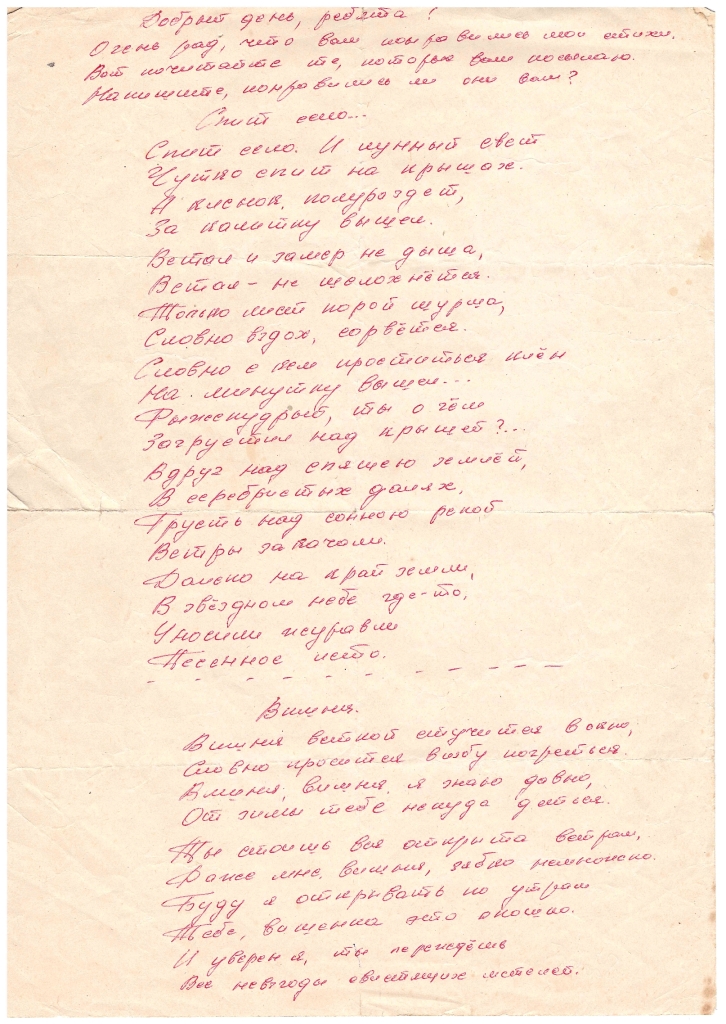 Добрый день, ребята!
Очень рад, что вам понравились мои стихи.
Вот почитайте те, которые вам посылаю.
Напишите, понравились ли они вам?
Спит село...
Спит село. И лунный свет
Чутко спит на крышах.
А кленок, полураздет,
За калитку вышел.
Встал и замер не дыша,
Встал – не шелохнётся.
Только лист порой шурша,
Словно вздох, сорвётся.
Словно с кем проститься клён
На минутку вышел...
Рыжекудрый, ты о чём
Загрустил над крышей?...
Вдруг над спящею землёй,
В серебристых далях,
Грусть над сонною рекой
Ветры закачали.
Далеко на край земли,
В звёздном небе где-то,
Уносили журавли
Песенное лето.
Вишня.
Вишня веткой стучится в окно,
Словно просится в избу погреться.
Вишня, вишня, я знаю давно,
От зимы тебе некуда деться.
Ты стоишь вся открыта ветрам,
Даже мне, вишня, зябко немножко.
Буду я открывать по утрам
Тебе, вишенка это окошко.
И уверен я, ты переждёшь
Все невзгоды свистящих метелей.